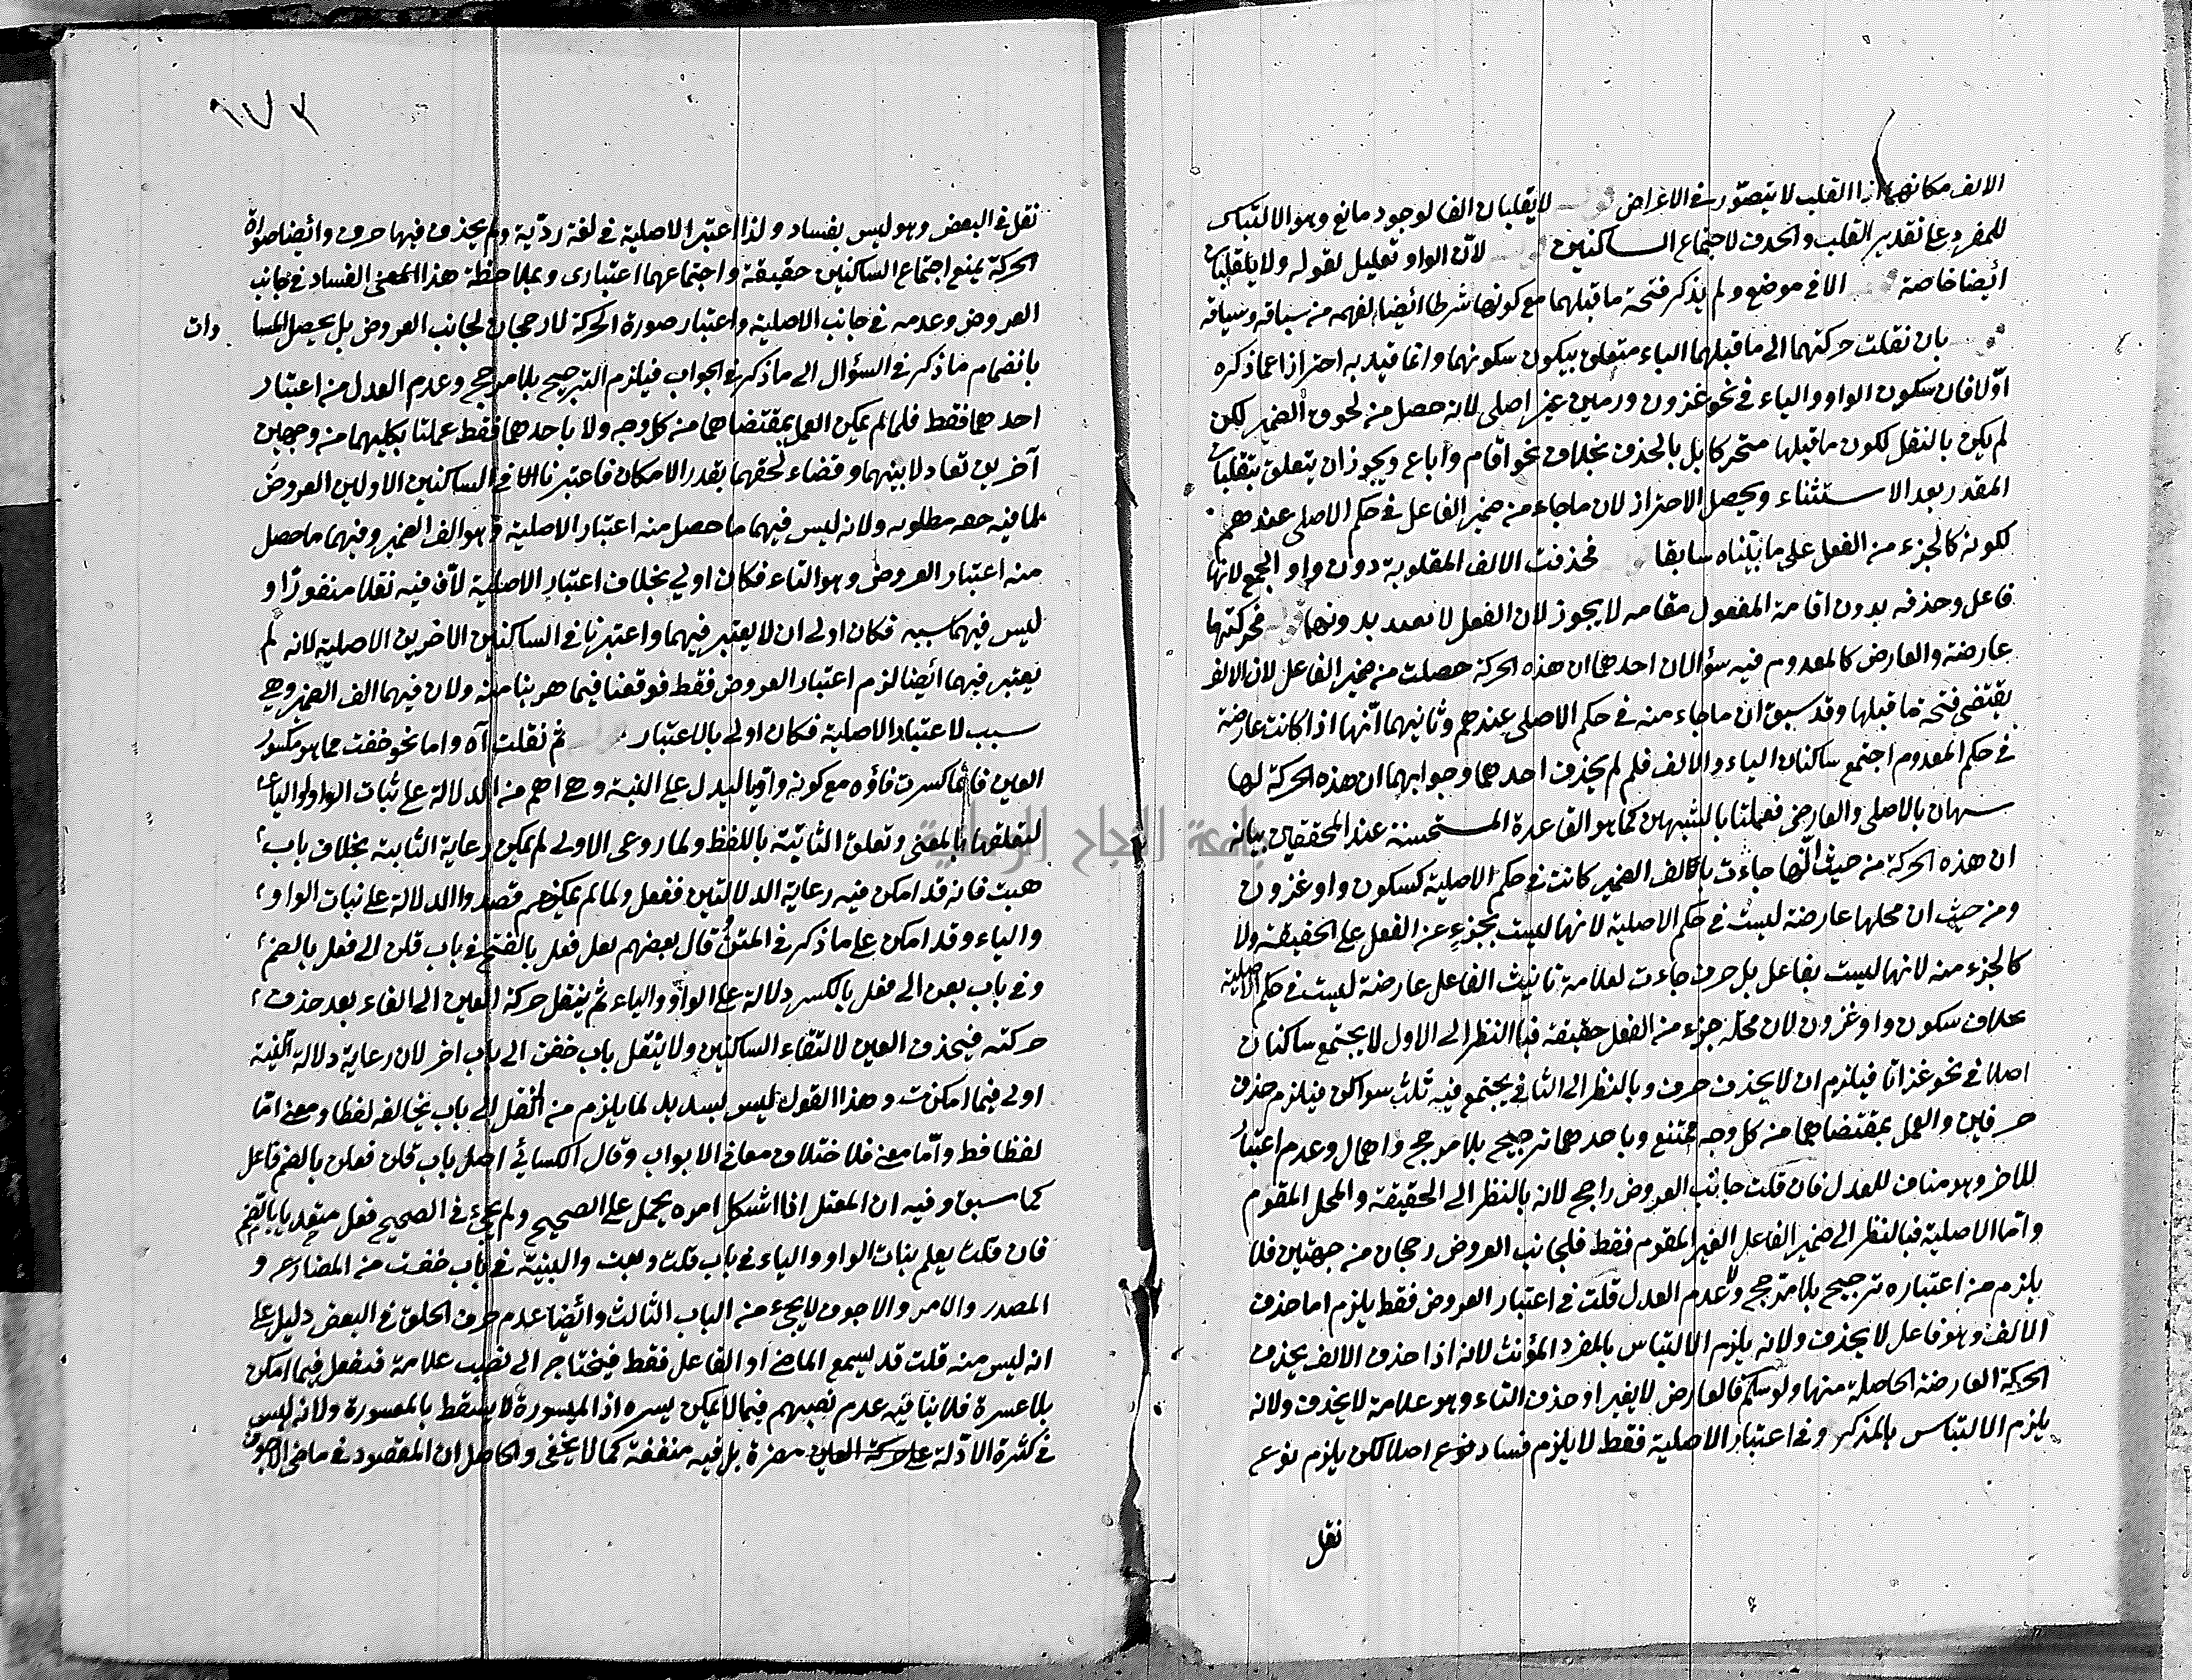 الالف مكانهما اذ القلب لا يتصور في الاعراض لا يقلبان الفا لوجود مانع وهو الالتباس
للمفرد على تقدير القلب والحذف لاجتماع الساكنين لان الواو تعليل لقوله ولا يقلبان
ايضا خاصة الا في موضع ولم يذكر فتحة ما قبلهما مع كونها شرطا ايضا لفهمه من سباقه وسياقه
بان نقلت حركتهما الى ما قبلهما الباء متعلق بيكون سكونهما وانما قيد به احترازا عما ذكره
اولا فان سكون الواو والياء في نحو غزون ورمين غير اصلي لانه حصل من لحوق الضمير لكن
لم يكن بالنقل لكون ما قبلها متحركا بل بالحذف بخلاف نحو اقام واباع ويجوز ان يتعلق بتقلبان
المقدر بعد الاستثناء ويحصل الاحتراز لان ما جاء من ضمير الفاعل في حكم الاصلي عندهم
لكونه كالجزء من الفعل على ما بيناه سابقا فحذفت الالف المقلوبة دون واو الجمع لانها
فاعل وحذفه بدون اقامة المفعول مقامه لا يجوز لان الفعل لا بدونها فحركتها
عارضة والعارض كالمعدوم فيه سؤالان احدهما ان هذه الحركة حصلت من ضمير الفاعل لان الالف
يقتضي فتحة ما قبلها وقد سبق ان ما جاء منه في حكم الاصلي عندهم وثانيهما انها اذا كانت عارضة
في حكم المعدوم اجتمع ساكنان الياء والالف فلم لم يحذف احدهما وجوابهما ان هذه الحركة لها
شبهان بالاصلي والعارضي فعملنا بالشبهين كما هو القاعدة المستحسنة عند المحققين بيانه
ان هذه الحركة من حيث انها جاءت بالف الضمير كانت في حكم الاصلية كسكون واو غزون
ومن حيث ان محلها عارضة ليست في حكم الاصلية لانها ليست بجزء عن الفعل على الحقيقة ولا
كالجزء منه لانها ليست بفاعل بل حرف جاءت لعلامة تانيث الفاعل عارضة ليست في حكم الاصلية
بخلاف سكون واو غزون لان محله جزء من الفعل حقيقة فبالنظر الى الاول لا يجتمع ساكنان
اصلا في نحو غزاتا فيلزم ان لا يحذف حرف وبالنظر الى الثاني يجتمع فيه ثلث سواكن فيلزم حذف
حرفين والعمل بمقتضاهما من كل وجه ممتنع وباحدهما ترجيح بلا مرجح واهمال وعدم اعتبار
للاخر وهو مناف للعدل فان قلت جانب العروض راجح لانه بالنظر الى الحقيقة والمحل المقوم
واما الاصلية فبالنظر الى ضمير الفاعل الغير المقوم فقط فلجانب العروض رجحان من جهتين فلا
يلزم من اعتباره ترجيح بلا مرجح ولا عدم العدل قلت في اعتبار العروض فقط يلزم اما حذف
الالف وهو فاعل لا يحذف ولانه يلزم الالتباس بالمفرد المؤنث لانه اذا حذف الالف يحذف
الحركة العارضة الحاصلة منها ولو سلم فالعارض لا يغير او حذف التاء وهو علامة لا يحذف ولانه
يلزم الالتباس بالمذكر وفي اعتبار الاصلية فقط لا يلزم فساد نوع اصلا لكن يلزم نوع
نقل
٦٧٢
نقل في البعض وهو ليس بفساد ولذا اعتبر الاصلية في لغة ردية ولم يحذف فيها حرف وايضا صورة
الحركة يمنع اجتماع الساكنين حقيقة واجتماعهما اعتباري وبملاحظة هذا المعنى الفساد في جانب
العروض وعدمه في جانب الاصلية واعتبار صورة الحركة لا رجحان لجانب العروض بل يحصل المساوات
بانضمام ما ذكر في السؤال الى ما ذكر في الجواب فيلزم الترجيح بلا مرجح وعدم العدل من اعتبار
احدهما فقط فلما لم يمكن العمل بمقتضاهما من كل وجه ولا باحدهما فقط عملنا بكليهما من وجهين
آخرين تعادلا بينهما وقضاء لحقهما بقدر الامكان فاعتبرنا في الساكنين الاولين العروض
لما فيه مطلوبه ولانه ليس فيهما ما حصل منه اعتبار الاصلية وهو الف الضمير وفيهما ما حصل
منه اعتبار العروض وهو التاء فكان اولى بخلاف اعتبار الاصلية لان فيه نقلا منفورا و
ليس فيهما سببه فكان اولى ان لا يعتبر فيهما واعتبرنا في الساكنين الاخرين الاصلية لانه لم
يعتبر فيهما ايضا لزم اعتبار العروض فقط فوقعنا فيما هربنا منه ولان فيهما الف الضمير وهي
سبب لاعتبار الاصلية فكان اولى بالاعتبار ثم نقلت آه واما نحو خفت مما هو مكسور
العين فانما كسرت فاؤه مع كونه واويا ليدل على البنية وهي اهم من الدلالة على ثبات الواو والياء
لتعلقها بالمعنى وتعلق الثانية باللفظ ولما روعي الاولى لم يمكن رعاية الثانية بخلاف باب
هبت فانه قد امكن فيه رعاية الدلالتين ففعل ولما لم يمكنهم قصدوا الدلالة على نبات الواو
والياء وقد امكن على ما ذكر في المتن قال بعضهم نقل فعل بالفتح في باب قلن الى فعل بالضم
وفي باب بعن الى فعل بالكسر دلالة على الواو والياء ثم ينقل حركة العين الى الفاء بعد حذف
حركته فيحذف العين لالتقاء الساكنين ولا ينقل باب خفن الى باب اخر لان رعاية دلالة البنية
اولى فيما امكنت وهذا القول ليس بسديد لما يلزم من النقل الى باب يخالفه لفظا ومعنى اما
لفظا فط واما معنى فلاختلاف معاني الابواب وقال الكسائي اصل باب قلن فعلن بالضم فاعل
كما سبق وفيه ان المعتل اذا اشكل امره يحمل على الصحيح ولم يجئ في الصحيح فعل متعديا بالضم
فان قلت يعلم بنات الواو والياء في باب قلت وبعت والبنية في باب خفت من المضارع و
المصدر والامر والاجوف لا يجئ من الباب الثالث وايضا عدم حرف الحلق في البعض دليل على
انه ليس منه قلت قد يسمع الماضي او الفاعل فقط فيحتاج الى نصب علامة ففعل فيما امكن
بلا عسرة فلا ينافيه عدم نصبهم فيما لا يمكن يسره اذ الميسورة لا يسقط بالمعسورة ولانه ليس
في كثرة الادلة على حركة العين مضرة بل فيه منفعة كما لا يخفى والحاصل ان المقصود في ماضي الاجوف
جامعة النجاح الوطنية